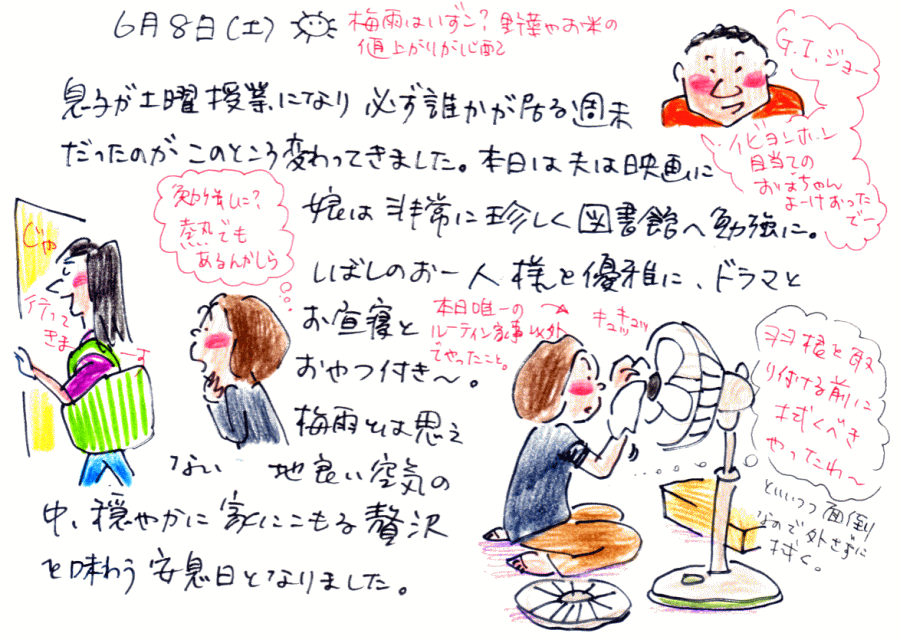 6月8日(土)
梅雨はいずこ? 野菜やお米の
値上がりが心配
G.I.ジョー
イビョンホン
目当ての
おばちゃん
よーけおった
でー
息子が土曜授業になり 必ず誰かが居る週末
だったのが このところ変わってきました。本日は夫は映画に
娘は非常に珍しく図書館へ勉強に。
しばしのお一人様を優雅に、ドラマと
お昼寝と
おやつ付き〜。
梅雨とは思え
ない 地良い空気の
中、穏やかに家にこもる贅沢
を味わう安息日となりました。
じゃ
行って
きま
ーす
勉強しに?
熱でも
あるんかしら
本日唯一の
ルーティン家事以外
でやったこと。
キュッキュッ
羽根を取
り付ける前に
拭くべき
やったわ〜
といいつつ面倒
なので外さずに
拭く。